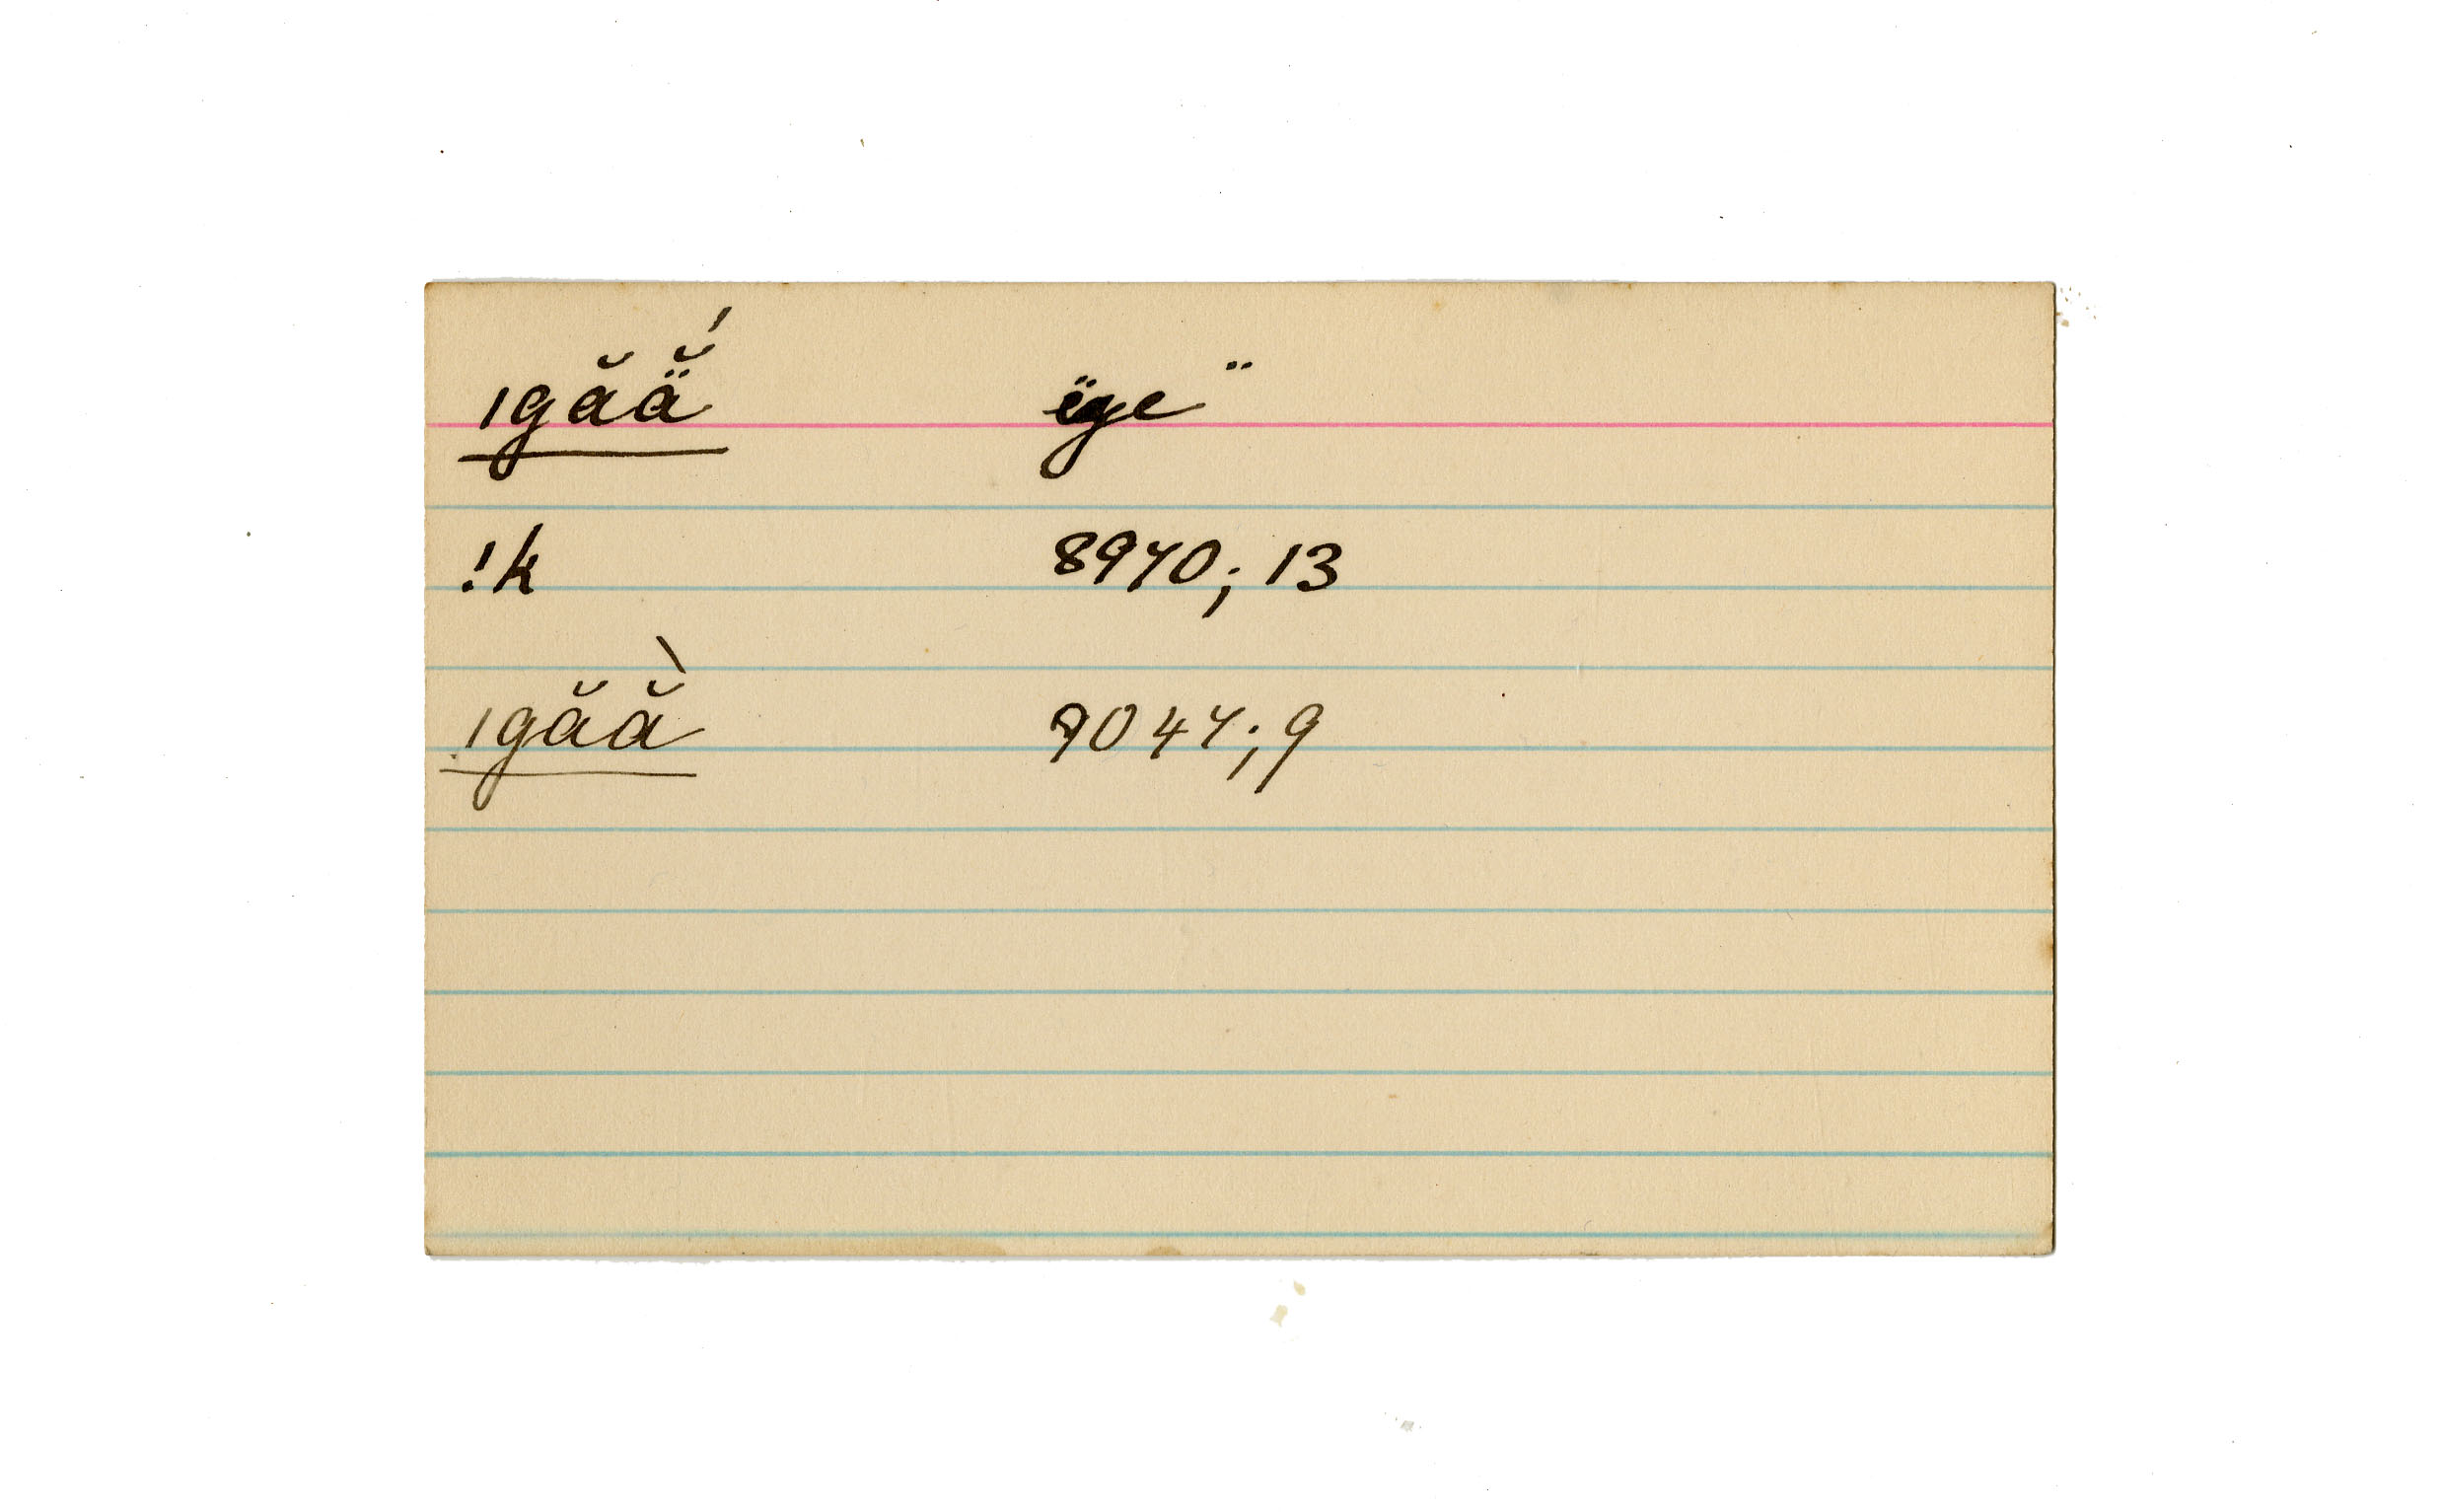 ǀgăä̆́ ëye ¨
!k 8970; 13
ǀgăằ 9047; 9